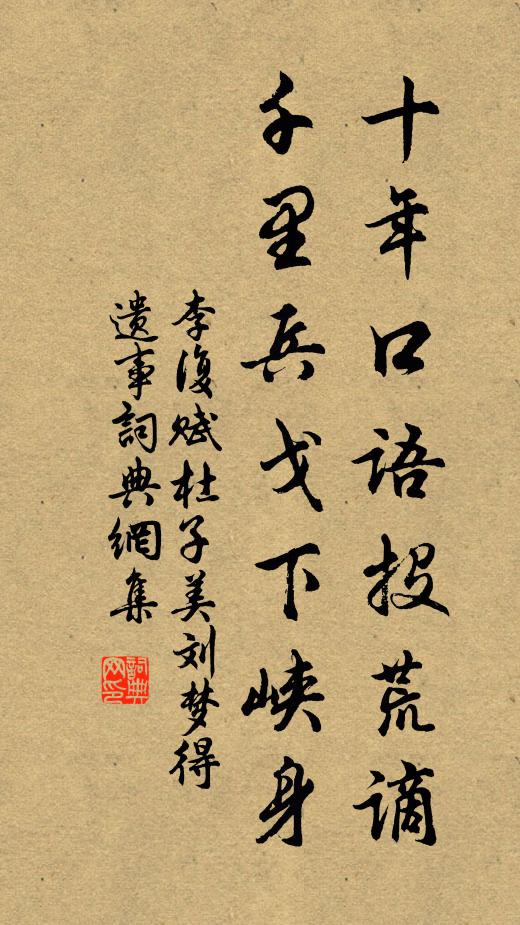 十年口语投荒谪
千里兵戈下峡身
李復赋杜子美刘梦得
遗事詞典網集
詞典
网印